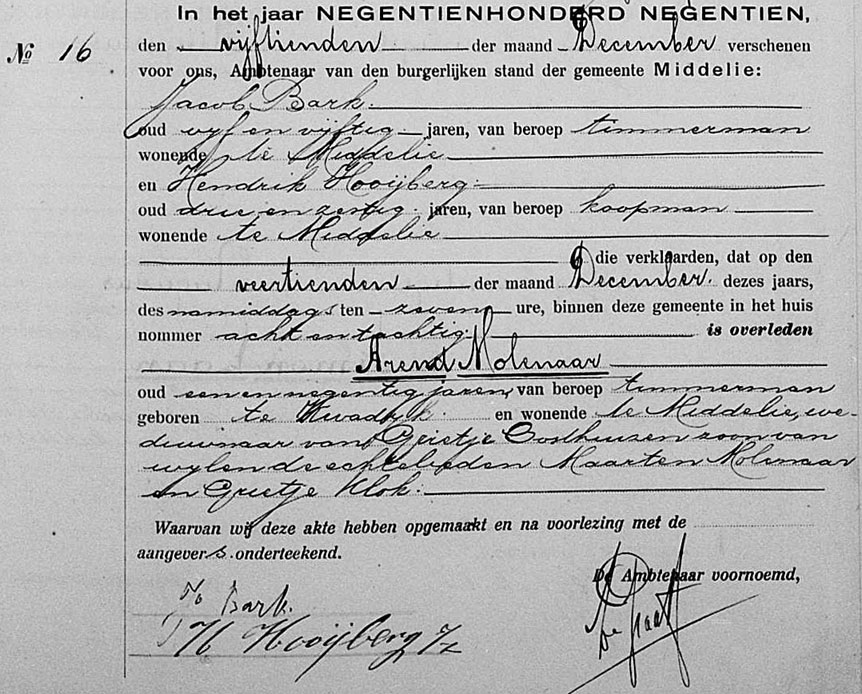 In het jaar NEGENTIENHONDERD NEGENTIEN,
№ 16 den vijftienden der maand December verschenen
voor ons, Ambtenaar van den burgerlijken stand der gemeente Middelie:
Jacob Bark
oud vyf en vijftig jaren, van beroep timmerman
wonende te Middelie
en Hendrik Hooijberg
oud drie en zestig jaren, van beroep koopman
wonende te Middelie
die verklaarden, dat op den
veertienden der maand December dezes jaars,
des namiddags ten zeven ure, binnen deze gemeente in het huis
nommer acht en tachtig is overleden
Arend Molenaar
oud een en negentig jaren, van beroep timmerman
geboren te Kwadijk en wonende te Middelie, we-
duwnaar van Grietje Oosthuizen zoon van
wylen de echtelieden Maarten Molenaar
en Grietje Klok.
Waarvan wij deze akte hebben opgemaakt en na voorlezing met de
aangevers onderteekend.
De Ambtenaar voornoemd,
Bark.
H Hooijberg Jz
De Graaf